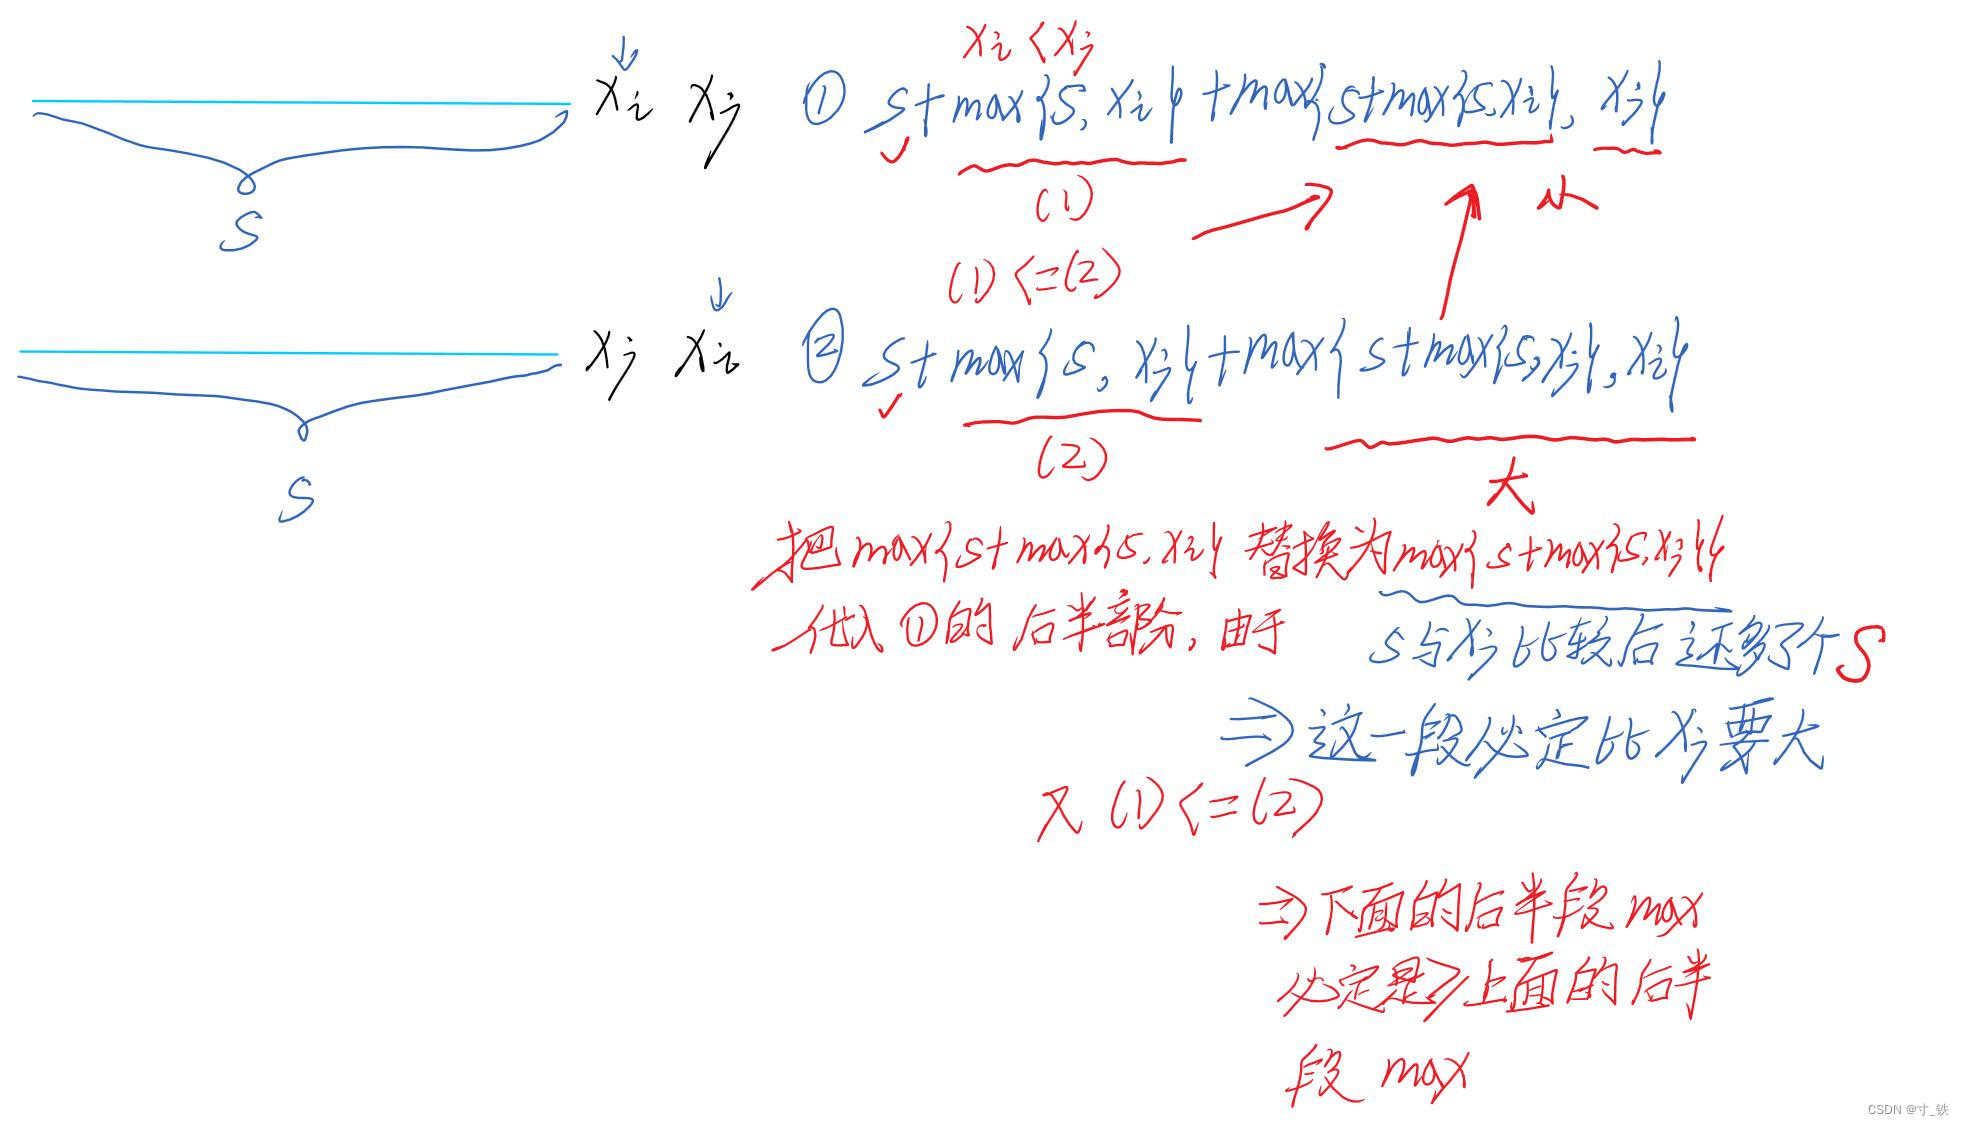 xi < xj
xi xj ① s+max{s, xi}+max{s+max{s,xi}, xj}
(1) 小
S
(1)<=(2)
xj xi ② s+max{s, xj}+max{s+max{s,xj}, xi}
(2) 大
S
把max{s+max{s,xi} 替换为max{s+max{s,xj}}
代入①的后半部分,由于
s与xj比较后还多了个S
⇒这一段必定比xj要大
又(1)<=(2)
⇒下面的后半段max
必定是≥上面的后半
段 max
CSDN @寸_铁